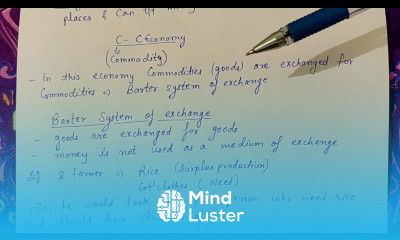 places & can
C - C Economy
(Commodity)
- In this economy Commodities (goods) are exchanged for
Commodities => Barter System of exchange
Barter System of exchange
- goods are exchanged for goods
- money is not used as a medium of exchange
eg a farmer => Rice (Surplus production)
clothes (Need)
So, he would look who need rice
& should have
Mind
Luster